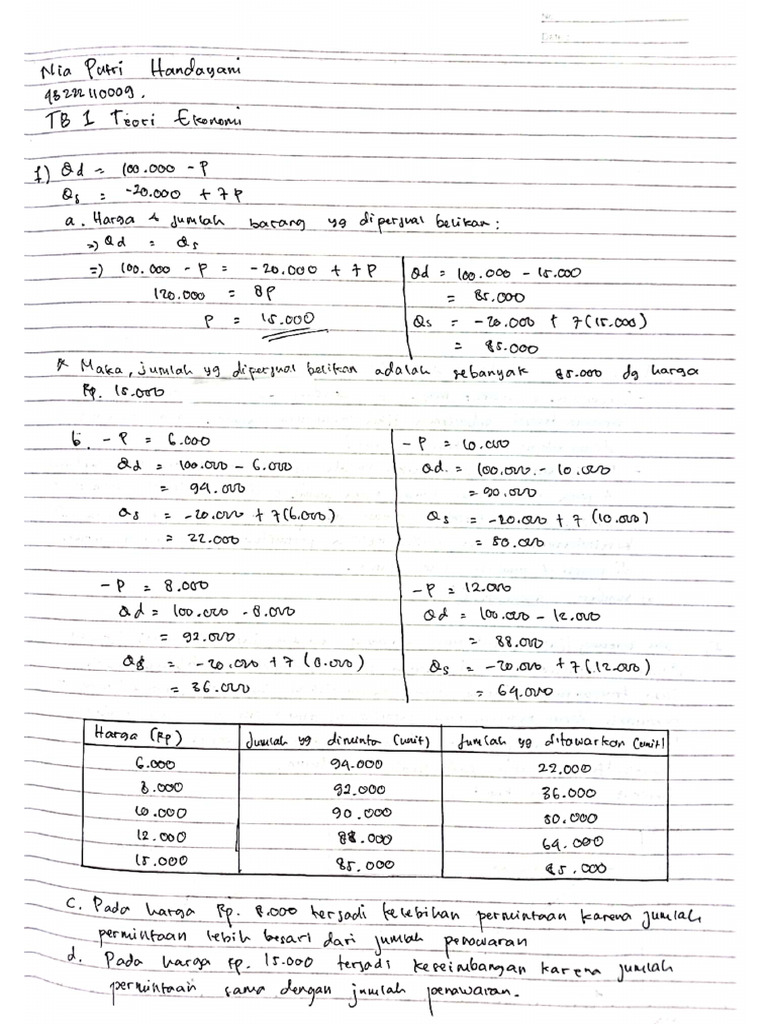 No.
Date
Nia Putri Handayani
43222110009.
TB 1 Teori Ekonomi
1) Qd = 100.000 - P
Qs = -20.000 + 7P
a. Harga & jumlah barang yg diperjual belikan :
=> Qd = Qs
=> 100.000 - P = -20.000 + 7P
120.000 = 8P
P = 15.000
Qd = 100.000 - 15.000
= 85.000
Qs = -20.000 + 7(15.000)
= 85.000
* Maka, jumlah yg diperjual belikan adalah sebanyak 85.000 dg harga
Rp. 15.000
b. - P = 6.000
Qd = 100.000 - 6.000
= 94.000
Qs = -20.000 + 7(6.000)
= 22.000
- P = 10.000
Qd = 100.000 - 10.000
= 90.000
Qs = -20.000 + 7(10.000)
= 50.000
- P = 8.000
Qd = 100.000 - 8.000
= 92.000
Qs = -20.000 + 7(8.000)
= 36.000
- P = 12.000
Qd = 100.000 - 12.000
= 88.000
Qs = -20.000 + 7(12.000)
= 64.000
Harga (Rp) Jumlah yg diminta (unit) Jumlah yg ditawarkan (unit)
6.000 94.000 22.000
8.000 92.000 36.000
10.000 90.000 50.000
12.000 88.000 64.000
15.000 85.000 85.000
c. Pada harga Rp. 8.000 terjadi kelebihan permintaan karena jumlah
permintaan lebih besari dari jumlah penawaran
d. Pada harga Rp. 15.000 terjadi keseimbangan karena jumlah
permintaan sama dengan jumlah penawaran.